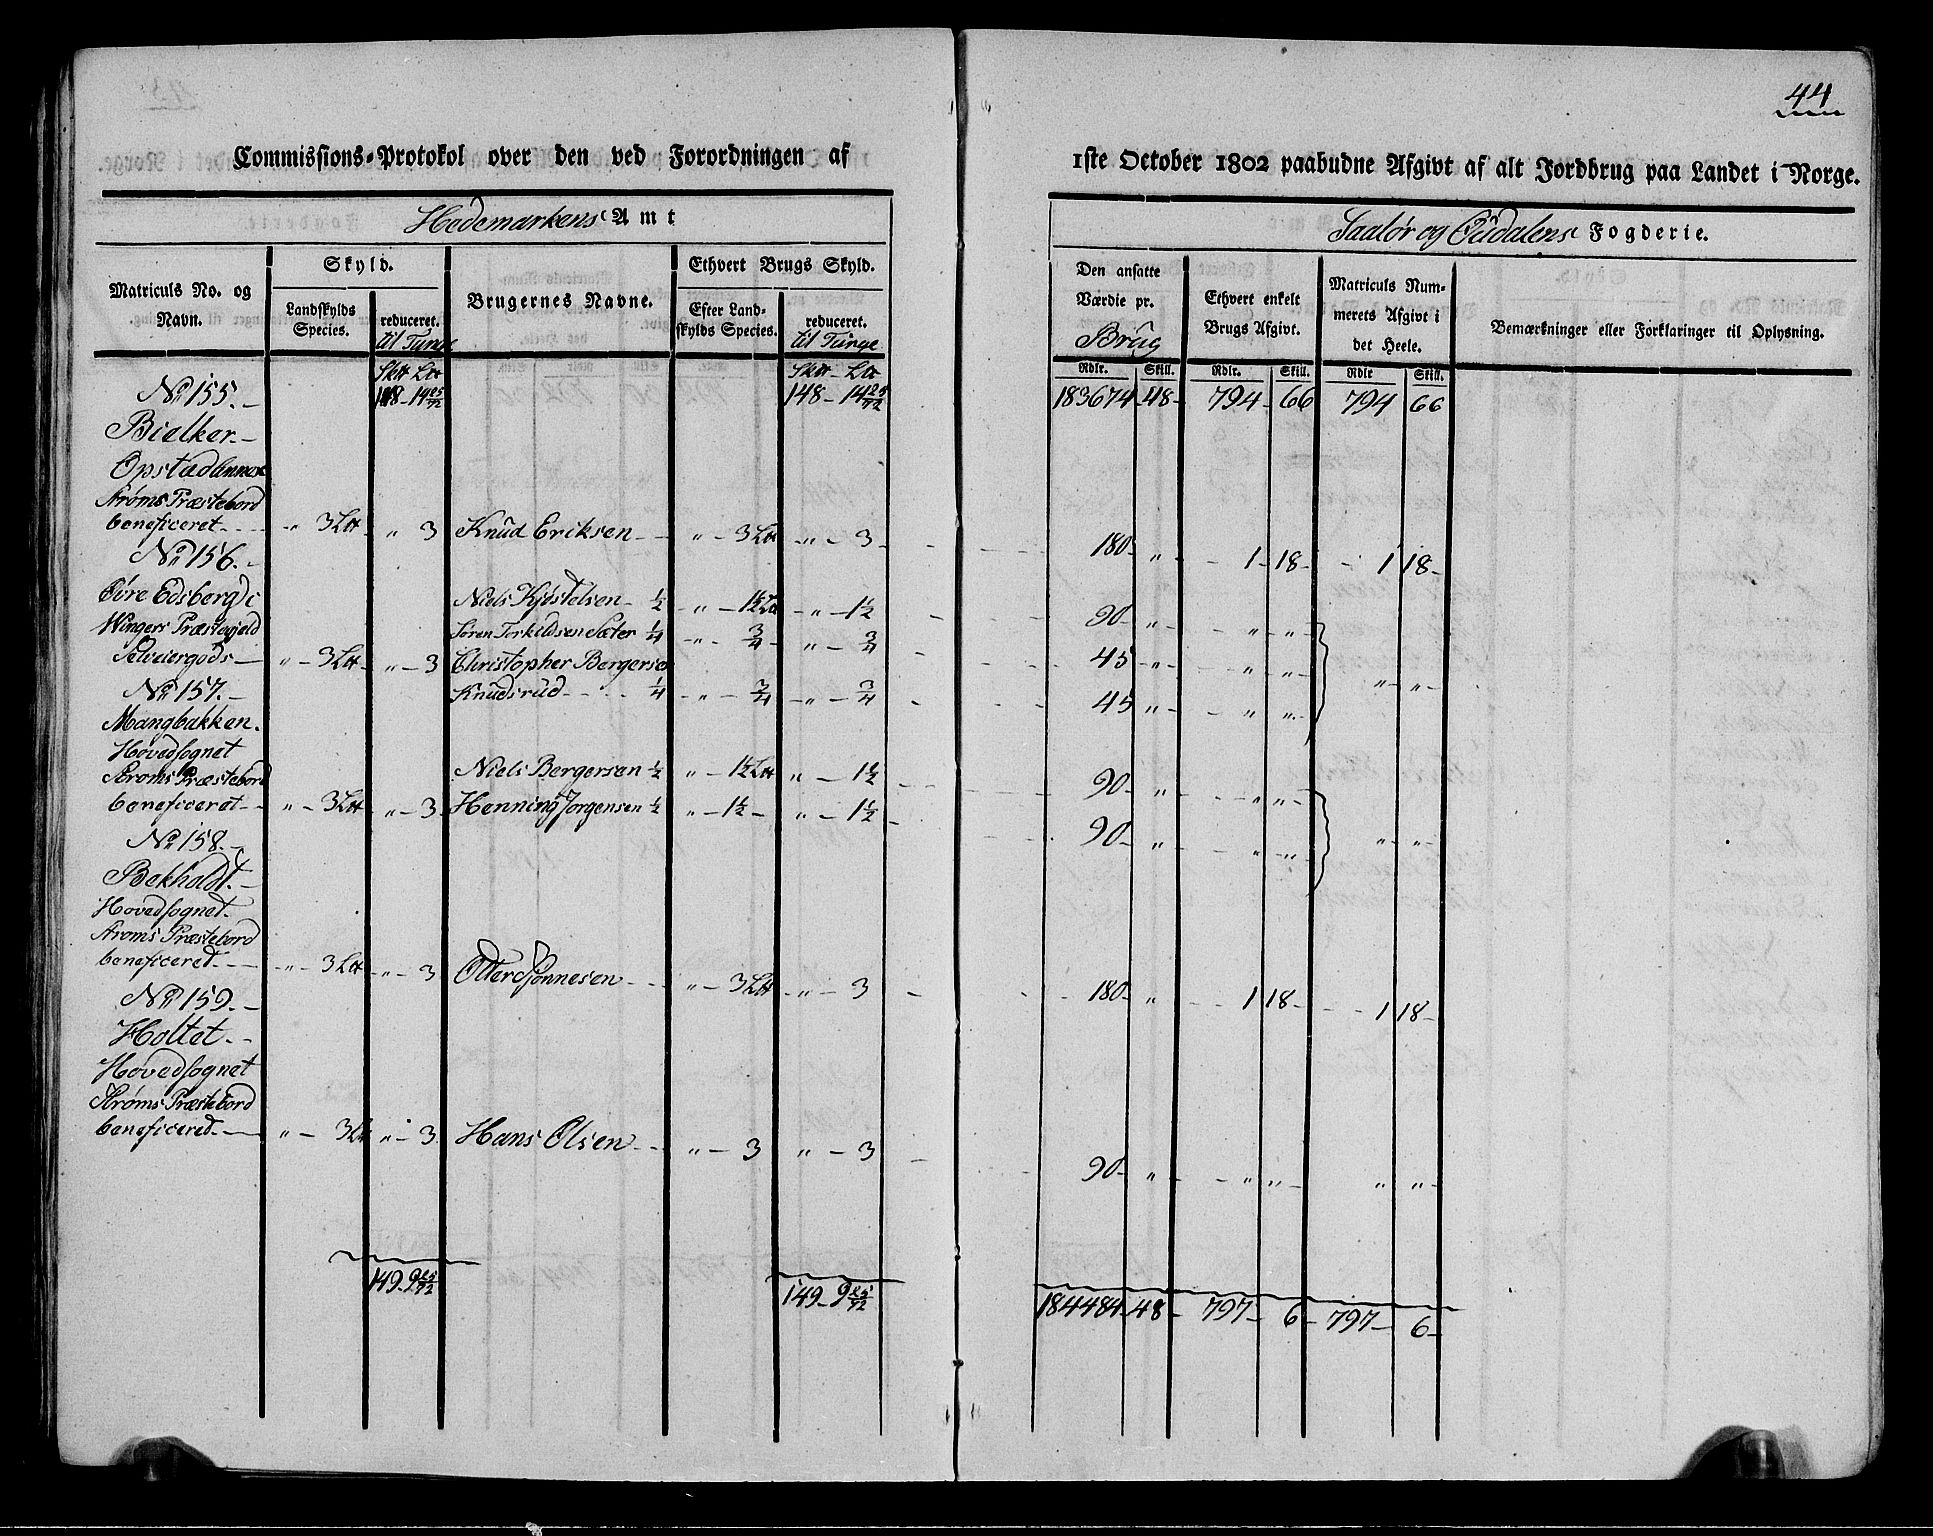 44
Commissions-Protokol over den ved Forordningen af 1ste October 1802 paabudne Afgivt af alt Jordbrug paa Landet i Norge.
Hedemarkens Amt
Soløer og Oudalens Fogderie.
Matriculs No. og Navn.
Skyld.
Landskylds Species.
reduceret. til Tunge
Brugernes Navne.
Ethvert Brugs Skyld.
Efter Landskylds Species.
reduceret. til Tunge
Den ansatte Værdie pr. Brug
Ethvert enkelt Brugs Afgivt.
Matriculs Nummerets Afgivt i det Heele.
Bemærkninger eller Forklaringer til Oplysning.
Rdlr. Skill. Rdlr. Skill. Rdlr Skill.
No 155. 148 - 14 25/72 148 - 14 25/72 183674 - 48 - 794 - 66 794 66
Bielker
Opstad
Strøms Præstebord
beneficeret - " 3 L " 3 Knud Eriksen " - 3 L " - 3 180 " 1 - 18 - 1 18
No 156.
Øvre Edsberg i Niels Kjøstelsen 1/2 " - 1 1/2 L " - 1 1/2 90 " " "
Wingers Præstegield Søren Torkildsen Sæter 1/4 " - 3/4 " - 3/4 45 " " "
Selveiergods " - 3 L " - 3 Christopher Bergersen " "
No 157. Knudsrud 1/4 " - 3/4 " - 3/4 45 " " "
Mangbakken.
Hovedsognet
Strøms Præstebord Niels Bergersen 1/2 " - 1 1/2 L " - 1 1/2 90 " " "
beneficeret " - 3 L " - 3 Henning Jorgensen 1/2 " - 1 1/2 " - 1 1/2 90 " " " " "
No 158.
Bekholdt.
Hovedsognet.
Strøms Præstebord
beneficeret " - 3 L " - 3 Otter Tjonnesen " - 3 L " - 3 180 " 1 18 1 18
No 159.
Holtet
Hovedsognet
Strøms Præstebord
beneficeret " - 3 L " - 3 Hans Olsen " - 3 " - 3 90 " " " " "
149 - 9 25/72 149 - 9 25/72 184484 - 48 - 797 - 6 - 797 - 6